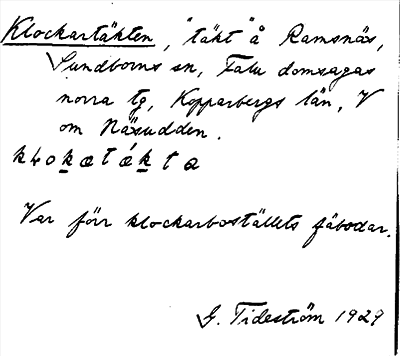 Klockartäkten, "täkt" å Ramsnäs,
Sundborns sn, Falu domsagas
norra tg, Kopparbergs län, V
om Näsudden.
Var förr klockarboställets fäbodar.
G. Tideström 1929